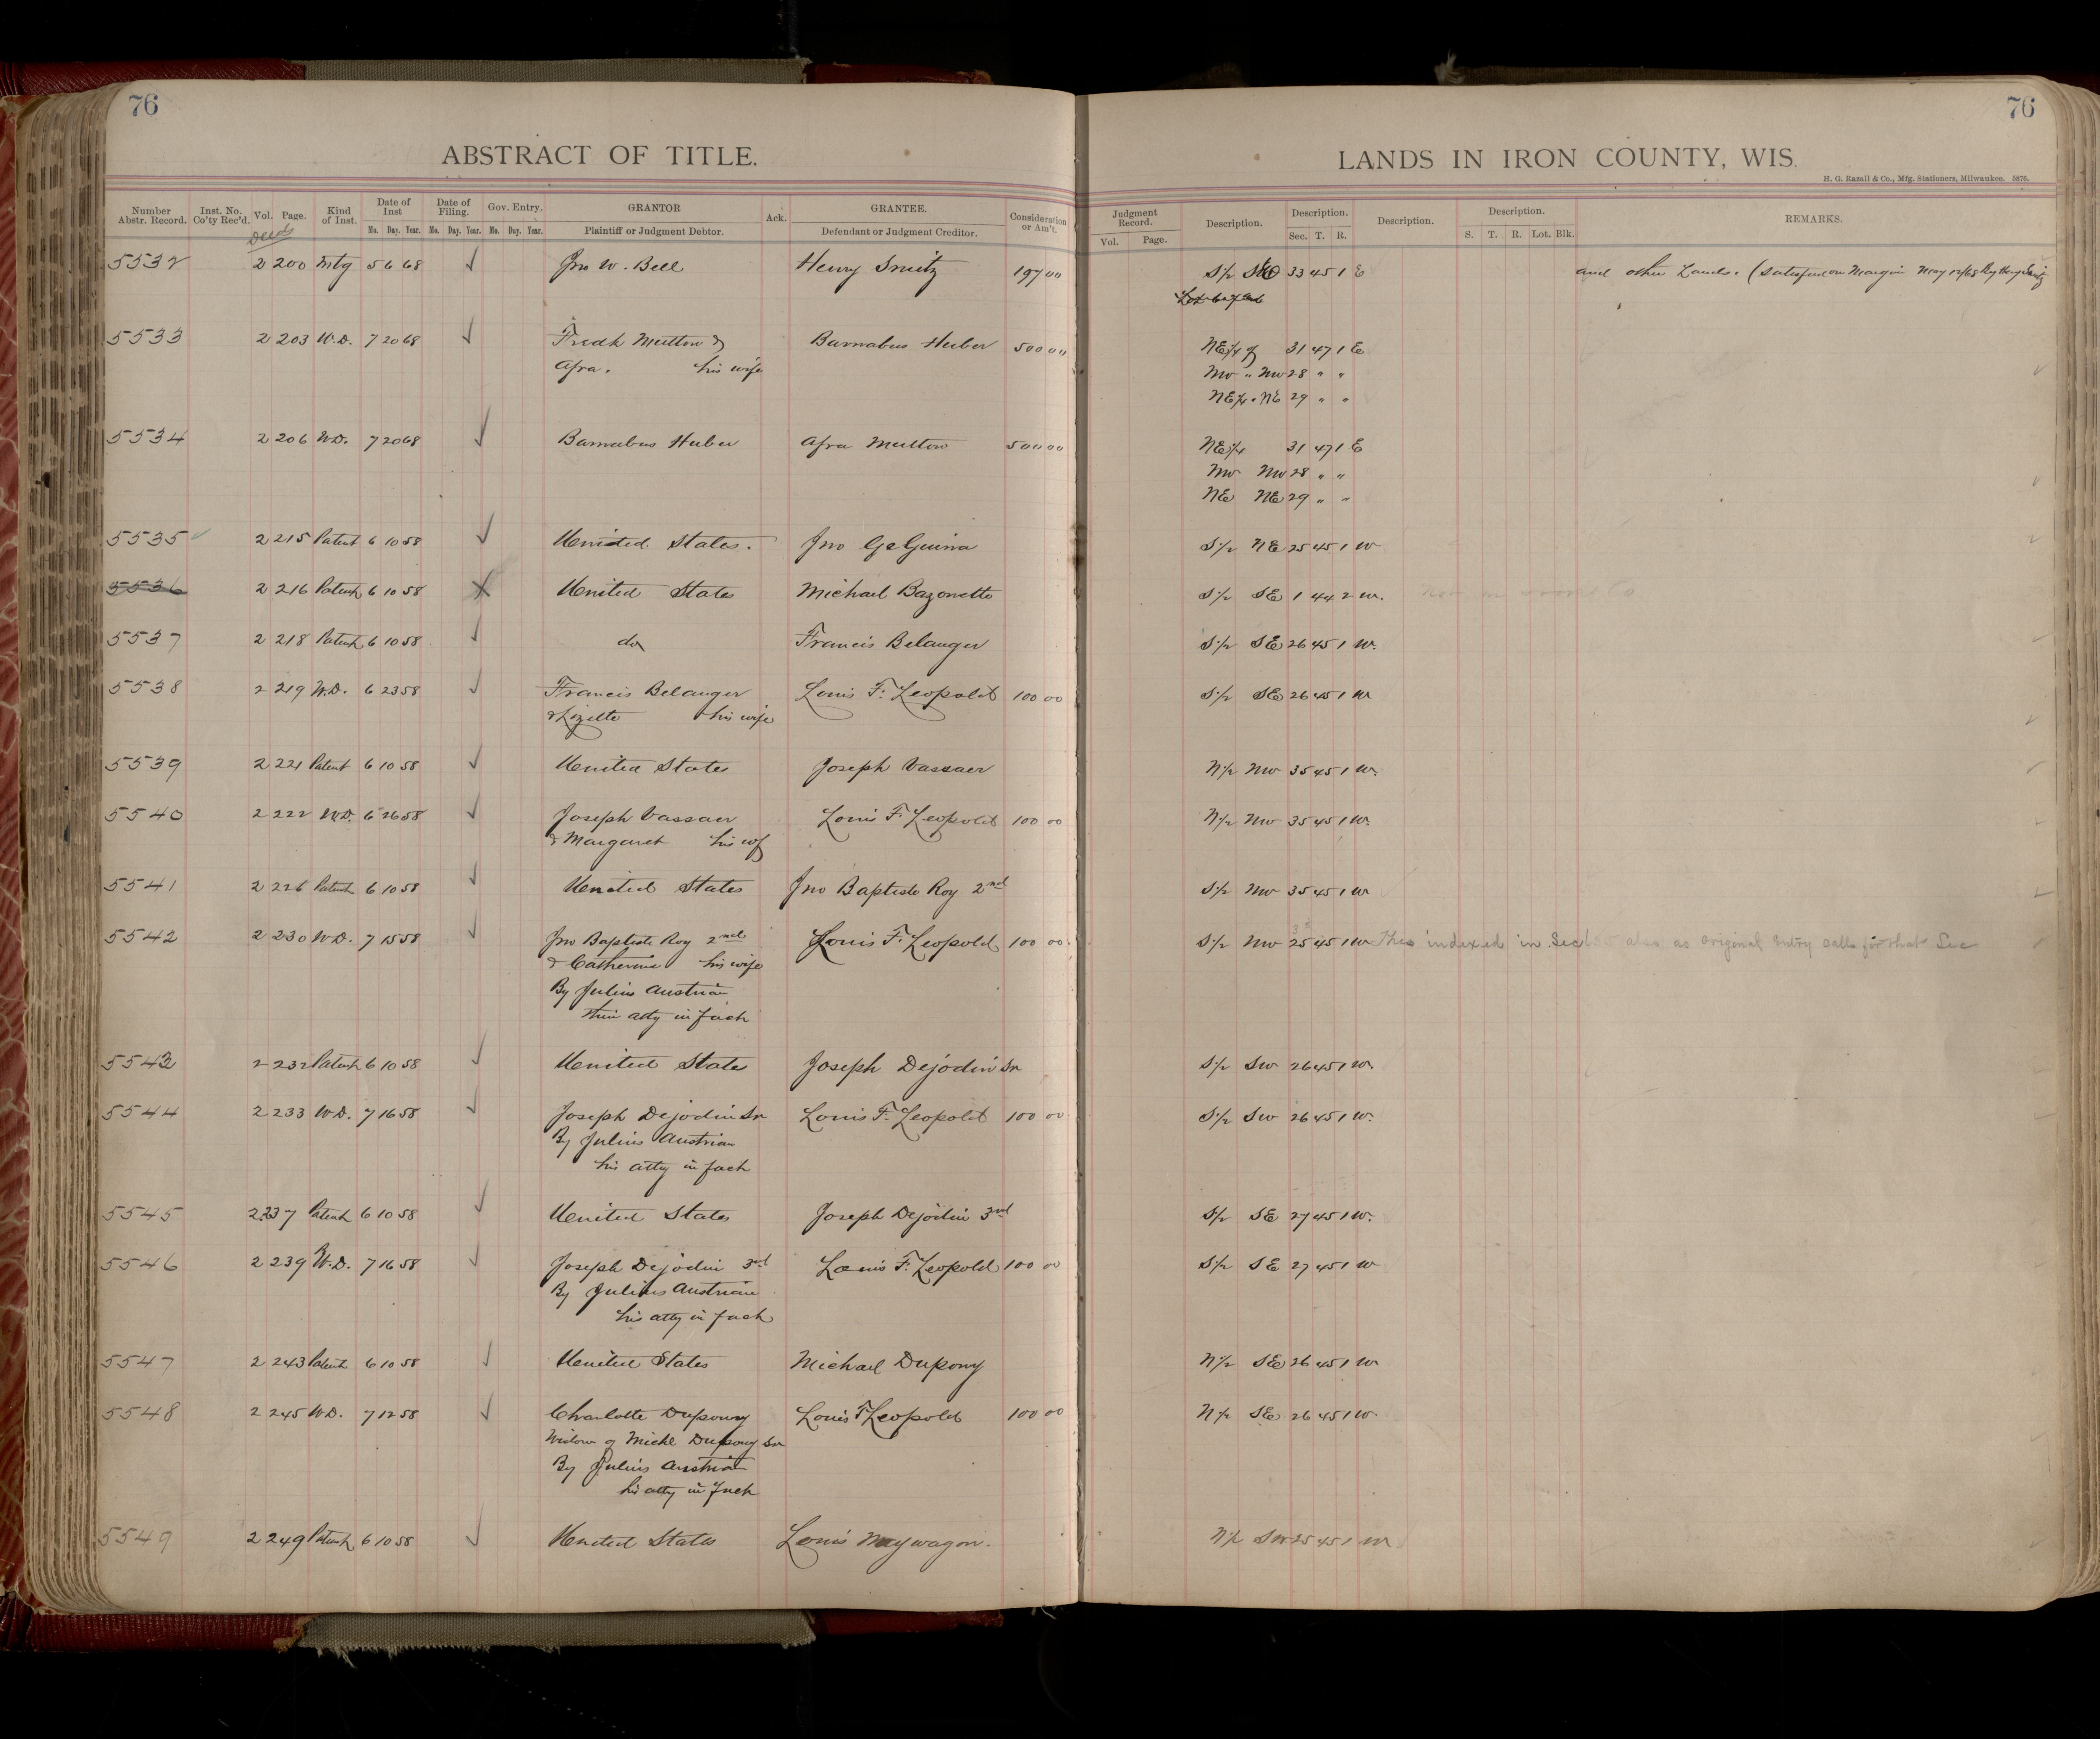 76
76
ABSTRACT OF TITLE.
LANDS IN IRON COUNTY, WIS.
H. G. Razall & Co., Mfg. Stationers, Milwaukee. 5876.
Number Abstr. Record. Inst. No. Co'ty Rec'd. Vol. Page. Kind of Inst. Date of Inst Mo. Day. Year. Date of Filing. Mo. Day. Year. Gov. Entry. Mo. Day. Year. GRANTOR Plaintiff or Judgment Debtor. Ack. GRANTEE. Defendant or Judgment Creditor. Consideration or Am't. Judgment Record. Vol. Page. Description. Description. Sec. T. R. Description. Description. S. T. R. Lot. Blk. REMARKS.
Deeds
5532 2 200 Mtg 5 6 68 ✓ Jno W. Bell Henry Smitz 197 00 S 1/2 33 45 1 E and other Lands. (Satisfied on Margin May
5533 2 203 W.D. 7 20 68 ✓ Fredk Mutton & Barnabus Huber 500 00 NE 1/4 of 31 47 1 E
Afra. his wife NW " NW 28 " "
NE 1/4 " NE 29 " "
5534 2 206 W.D. 7 20 68 ✓ Barnabus Huber Afra Mutton 500 00 NE 1/4 31 47 1 E
NW NW 28 " "
NE NE 29 " "
5535 ✓ 2 215 Patent 6 10 58 ✓ United States. Jno GeGuina S 1/2 NE 25 45 1 W
5536 2 216 Patent 6 10 58 X United States Michael Bazonette S 1/2 SE 1 44 2 W. Not in Co
5537 2 218 Patent 6 10 58 ✓ do Francis Belanger S 1/2 SE 26 45 1 W.
5538 2 219 W.D. 6 23 58 ✓ Francis Belanger Louis F. Leopold 100 00 S 1/2 SE 26 45 1 W
& Lizette his wife
5539 2 221 Patent 6 10 58 ✓ United States Joseph Vassaer N 1/2 NW 35 45 1 W.
5540 2 222 W.D. 6 26 58 ✓ Joseph Vassaer Louis F. Leopold 100 00 N 1/2 NW 35 45 1 W.
& Margaret his wf
5541 2 226 Patent 6 10 58 ✓ United States Jno Baptiste Roy 2nd S 1/2 NW 35 45 1 W
5542 2 230 W.D. 7 15 58 ✓ Jno Baptiste Roy 2nd Louis F. Leopold 100 00 S 1/2 NW 25 45 1 W This indexed in Sec 35 also as original entry calls for that Sec
& Catherine his wife
By Julius Austrian
their atty in fact
5543 2 232 Patent 6 10 58 ✓ United States Joseph Dejodin Sr S 1/2 SW 26 45 1 W.
5544 2 233 W.D. 7 16 58 ✓ Joseph Dejodin Sr Louis F. Leopold 100 00 S 1/2 SW 26 45 1 W.
By Julius Austrian
his atty in fact
5545 2 237 Patent 6 10 58 ✓ United States Joseph Dejodin 3rd S 1/2 SE 27 45 1 W.
5546 2 239 W.D. 7 16 58 ✓ Joseph Dejodin 3rd Louis F. Leopold 100 00 S 1/2 SE 27 45 1 W
By Julius Austrian
his atty in fact
5547 2 243 Patent 6 10 58 ✓ United States Michael Dupouy N 1/2 SE 26 45 1 W
5548 2 245 W.D. 7 12 58 ✓ Charlotte Dupouy Louis F Leopold 100 00 N 1/2 SE 26 45 1 W.
Widow of Michl Dupouy Sr
By Julius Austrian
his atty in fact
5549 2 249 Patent 6 10 58 ✓ United States Louis Maywagon. N 1/2 SW 25 45 1 W